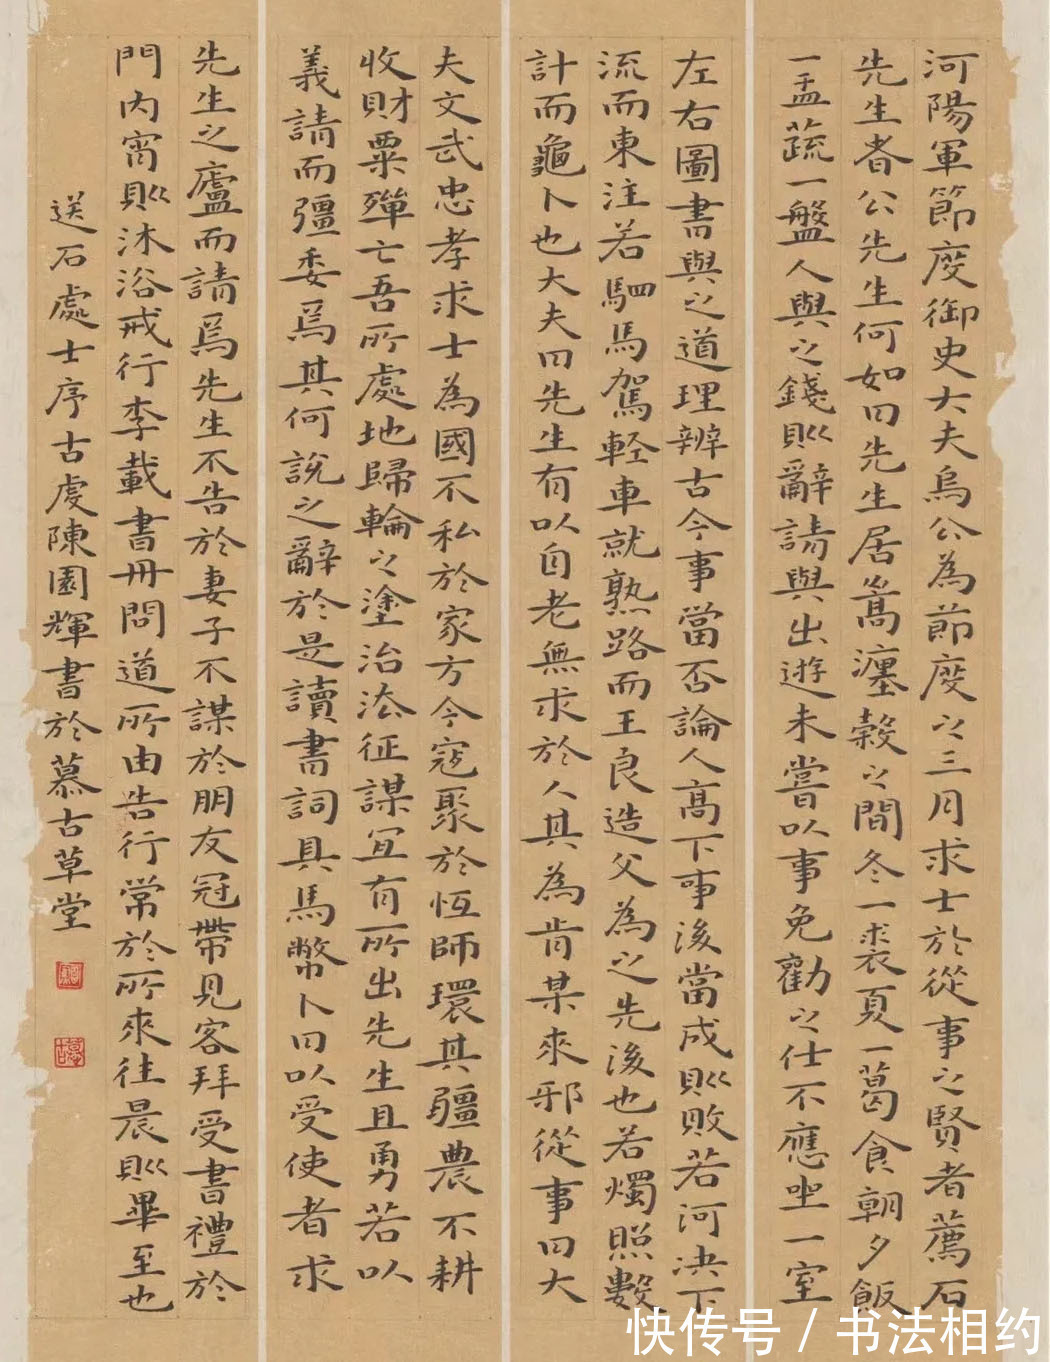 河陽軍節度御史大夫烏公為節度之三月求士於從事之賢者薦石
先生者公先生何如曰先生居嵩瀍榖之間冬一裘夏一葛食朝夕飯
一盂蔬一盤人與之錢則辭請與出遊未嘗以事免勸之仕不應坐一室
左右圖書與之道理辨古今事當否論人高下事後當成則敗若河決下
流而東注若駟馬駕輕車就熟路而王良造父為之先後也若燭照數
計而龜卜也大夫曰先生有以自老無求於人其為肯某來邪從事曰大
夫文武忠孝求士為國不私於家方今寇聚於恆師環其疆農不耕
收財粟殫亡吾所處地歸輪之塗治法征謀宜有所出先生且勇若以
義請而彊委焉其何說之辭於是讀書詞具馬幣卜曰以受使者求
先生之廬而請焉先生不告於妻子不謀於朋友冠帶見客拜受書禮於
門內宵則沐浴戒行李載書冊問道所由告行常於所來往晨則畢至也
送石處士序古虔陳園輝書於慕古草堂
快传号/书法相约